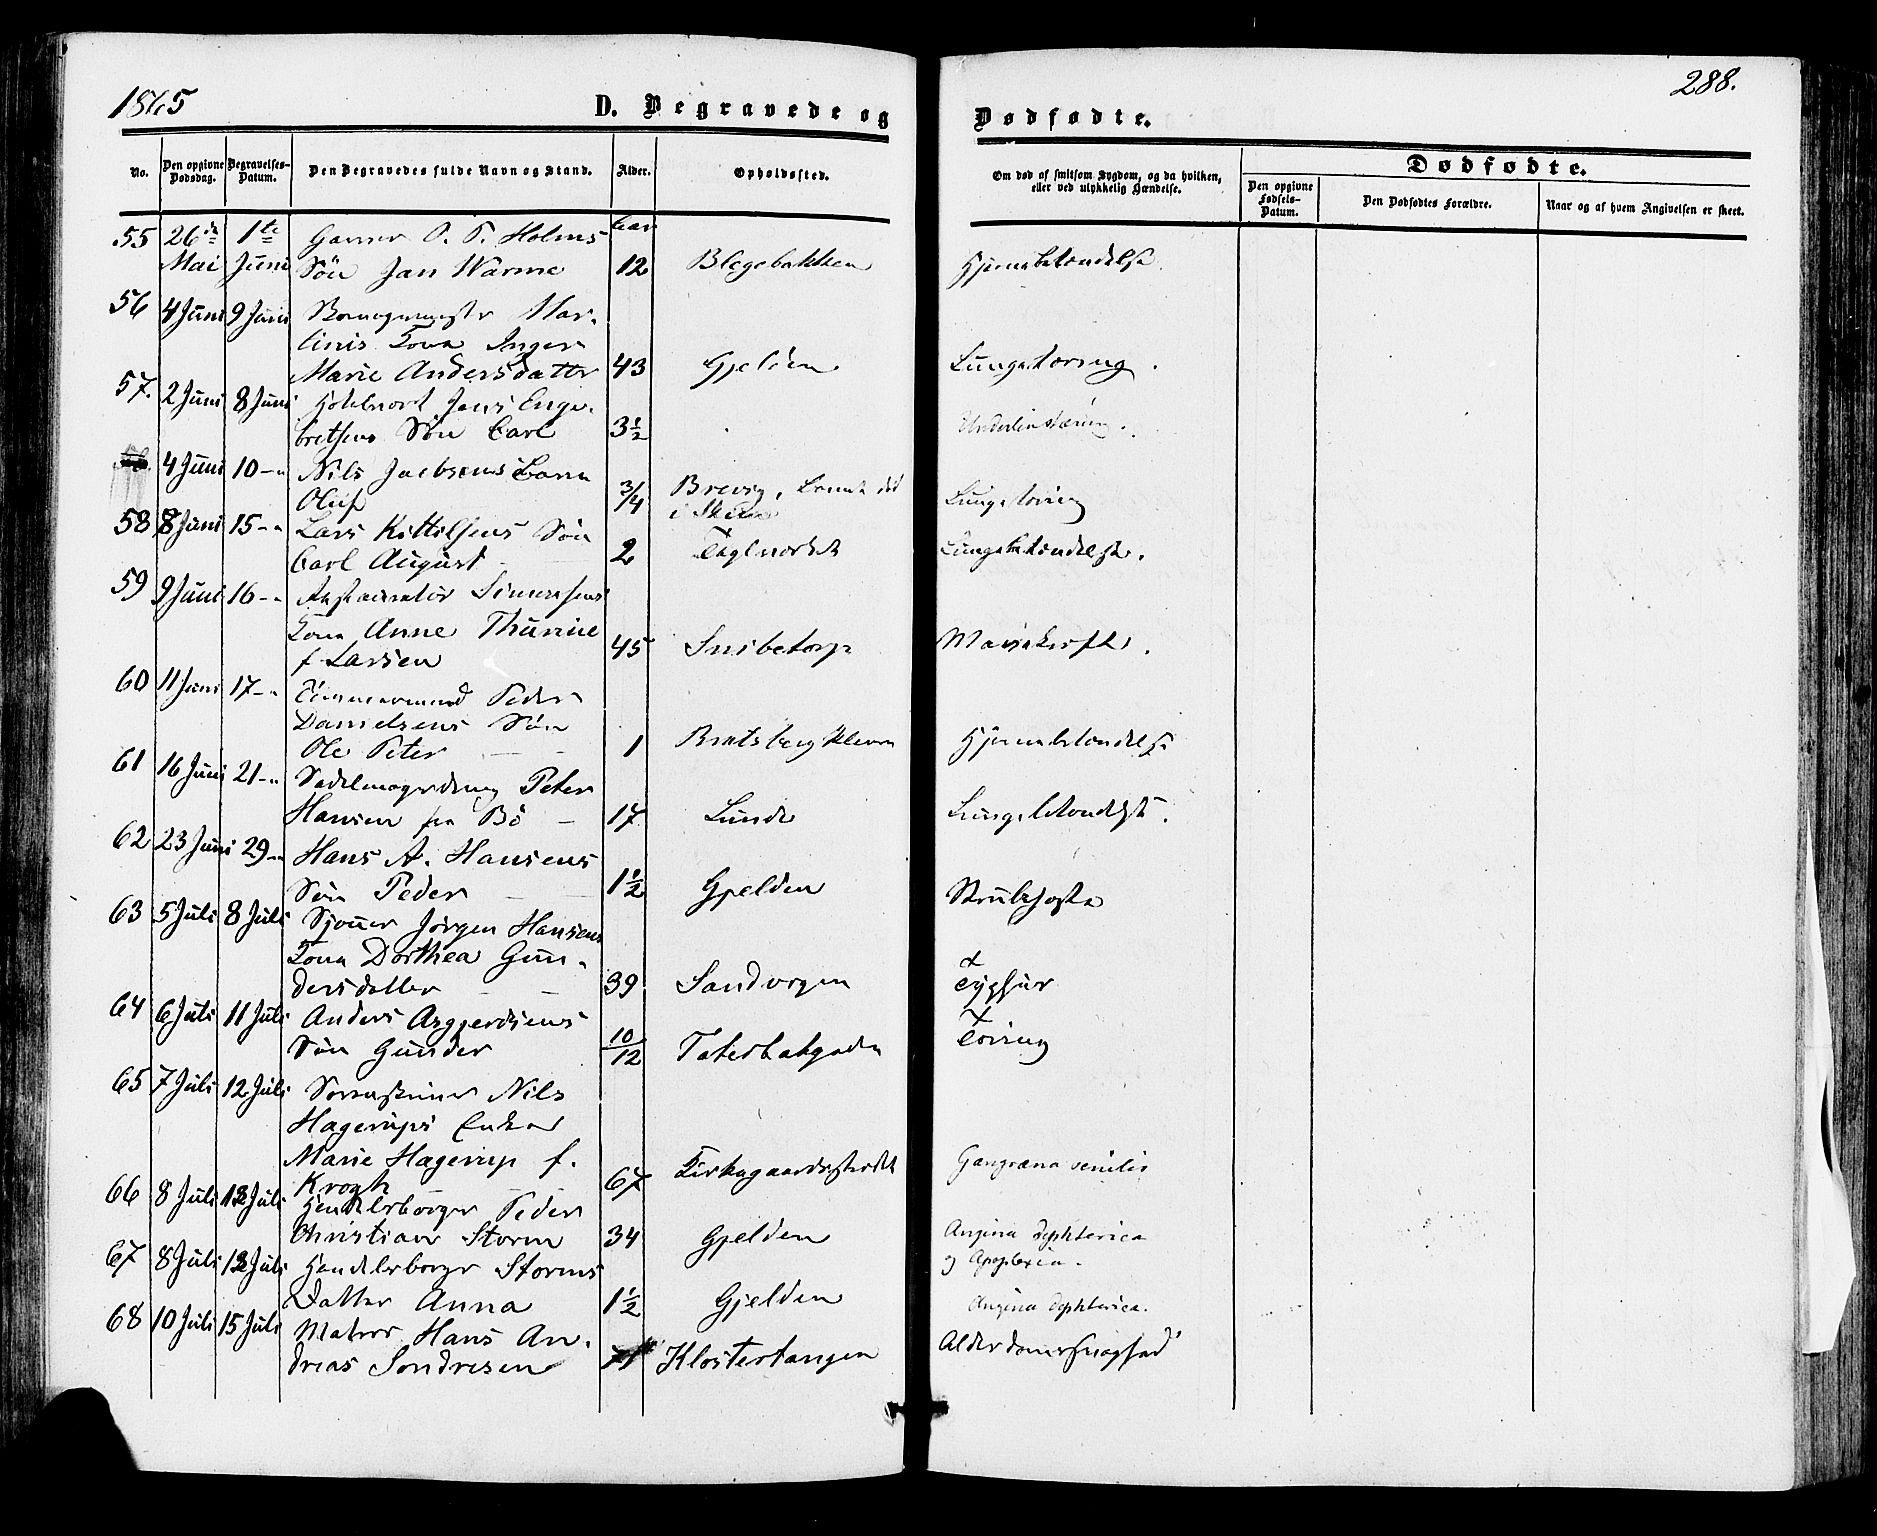 1865
288.
D. Begravede og Dødfødte.
No.
Den opgivne Dødsdag.
Begravelses-Datum.
Den Begravedes fulde Navn og Stand.
Alder.
Opholdssted.
Om død af smitsom Sygdom, og da hvilken,
eller ved ulykkelig Hændelse.
Dødfødte.
Den opgivne Fødsels-Datum.
Den Dødfødtes Forældre.
Naar og af hvem Angivelsen er skeet.
55 26de 1te Garver O. T. Holms
Mai Juni Søn Jan Warme 12 Blegebakken Hjernebetændelse.
56 4 Juni 9 Juni Mar-
tinis Kona Inger
Marie Andersdatter 43 Gjelden Lungetæring.
57. 2 Juni 8 Juni Jens Enge-
bretsens Søn Carl 3 1/2
4 Juni 10 - " Nils Jacobsens Barn
Oluf 3/4 Brevig, død i Skien Lungetæring
58 8 Juni 15 - " Lars Kittilsens Søn
Carl August 2 Teglverket Lungebetændelse.
59 9 Juni 16 - " Simensens
Kona Anne Thurine
f. Larsen 45 Snibetorp
60 11 Juni 17 - " Tømmermand Peder
Danielsens Søn
Ole Peter 1 Bratsbergkleven Hjernebetændelse
61 16 Juni 21 - " Sadelmagerdreng Peter
Hansen fra Bö 17 Lunde Lungebetændelse.
62 23 Juni 29 - " Hans A. Hansens
Søn Peder 1 1/2 Gjelden Strubehoste
63 5 Juli 8 Juli Sjouer Jørgen Hansens
Kona Dorthea Gun-
dersdatter 39 Sandvegen Typhus
64 6 Juli 11 Juli Anders Asgjerdsens
Søn Gunder 10/12 Tæring
65 7 Juli 12 Juli Nils
Hagerups Enke
Marie Hagerup f.
Krogh 67 Gangræna senilis
66 8 Juli 12 Juli Handelsborger Peder
Christian Storm 34 Gjelden Angina dyphterica
og Apoplexia.
67 8 Juli 12 Juli Handelsborger Storms
Datter Anna 1 1/2 Gjelden Angina dyphterica.
68 10 Juli 15 Juli Matros Hans An-
dreas Sondresen 71 Klostertangen Alderdomssvaghed